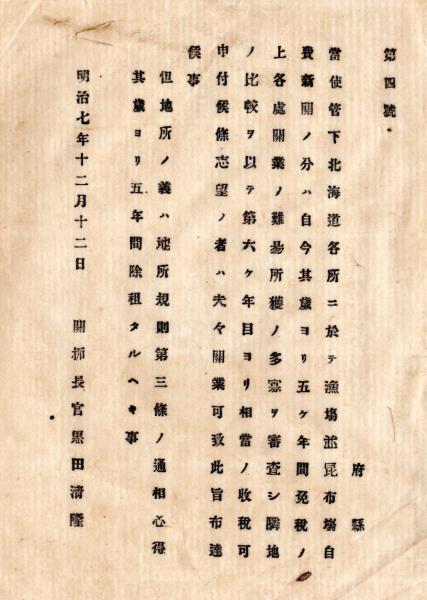 第四號
府縣
當使管下北海道各所ニ於テ漁場並昆布場自
費新開ノ分ハ自今其歲ヨリ五ケ年間免稅ノ
上各處開業ノ難易所獲ノ多寡ヲ審査シ隣地
ノ比較ヲ以テ第六ケ年目ヨリ相當ノ收稅可
申付候條志望ノ者ハ夫々開業可致此旨布達
候事
但地所ノ義ハ地所規則第三條ノ通相心得
其歲ヨリ五年間除租タルヘキ事
明治七年十二月十二日 開拓長官黑田淸隆